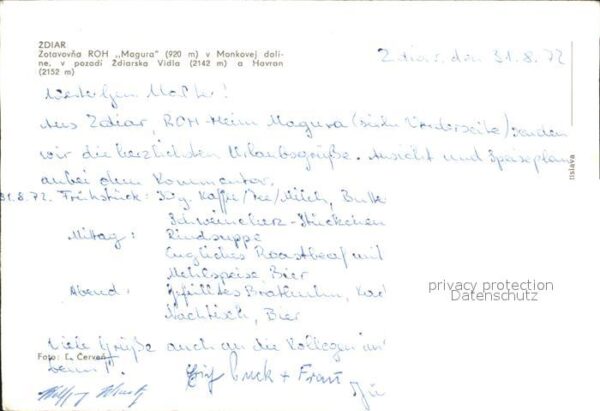 ŽDIAR
Zotavovňa ROH „Magura" (920 m) v Monkovej doli-
ne, v pozadí Ždiarska Vidla (2142 m) a Havran
(2152 m)
Zdiar, den 31.8.72
Aus Zdiar, ROH-Heim Magura (siehe Vorderseite) senden
wir die herzlichsten Urlaubsgrüße. Ansicht und Speiseplan
anbei dem Kommentar.
31.8.72. Frühstück: 30 g Kaffee/Tee/Milch, Butte
Schweineherz-Stückchen
Mittag: Rindsuppe
Englisches Roastbeaf mit
Mehlspeise Bier
Abend: Gefülltes Brathuhn,
Nachtisch, Bier
Viele Grüße auch an die Kollegen
Foto: Ľ. Červeň
+ Frau
nslava
privacy protection
Datenschutz